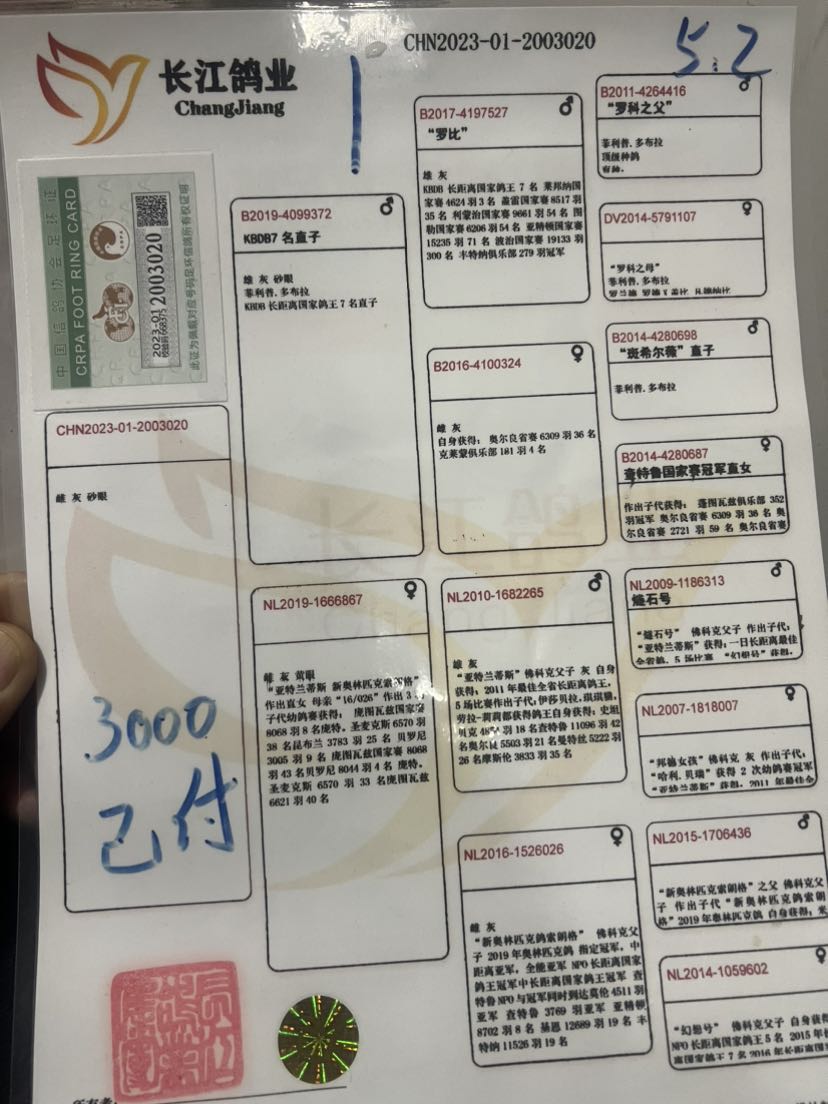 CHN2023-01-2003020
5.2
长江鸽业
ChangJiang
中国信鸽协会足环证
CRPA FOOT RING CARD
2023-01 2003020
此证为佩戴对应号码足环信鸽所有权证明
CHN2023-01-2003020
雌 灰 砂眼
3000
已付
B2019-4099372
KBDB7 名直子
雄 灰 砂眼
菲利普.多布拉
KBDB 长距离国家鸽王 7 名直子
NL2019-1666867
雌 灰 黄眼
作出直女 母亲“16/026”作出 3
子代幼鸽赛获得: 庞图瓦兹国家赛
8068 羽 8 名庞特。圣麦克斯 6570 羽
38 名昆布兰 3783 羽 25 名 贝罗尼
3005 羽 9 名 庞图瓦兹国家赛 8068
羽 43 名贝罗尼 8044 羽 4 名 庞特。
圣麦克斯 6570 羽 33 名庞图瓦兹
6621 羽 40 名
B2017-4197527
“罗比”
雄 灰
KBDB 长距离国家鸽王 7 名 莱邦纳国
家赛 4624 羽 3 名 盖雷国家赛 8517 羽
35 名 利蒙治国家赛 9661 羽 54 名 图
勒国家赛 6206 羽 54 名 亚精顿国家赛
15235 羽 71 名 波治国家赛 19133 羽
300 名 丰特纳俱乐部 279 羽冠军
B2016-4100324
雌 灰
自身获得: 奥尔良省赛 6309 羽 36 名
克莱蒙俱乐部 181 羽 4 名
NL2010-1682265
雄 灰
“亚特兰蒂斯”佛科克父子 灰 自身
获得: 2011 年最佳全省长距离鸽王,
5 场比赛作出子代: 伊莎贝拉, 琪琪猫,
劳拉-莉莉都获得鸽王自身获得: 史坦
贝克 羽 18 名查特鲁 11096 羽 42
名奥尔良 5503 羽 21 名曼特丝 5222 羽
26 名摩斯伦 3833 羽 35 名
NL2016-1526026
雌 灰
“新奥林匹克鸽索朗格” 佛科克父
子 2019 年奥林匹克鸽 指定冠军, 中
距离亚军, 全能亚军 NPO 长距离国家
鸽王冠军中长距离国家鸽王冠军 查
特鲁 NPO 与冠军同时到达莫伦 4511 羽
亚军 查特鲁 3769 羽亚军 亚精顿
8702 羽 8 名 基恩 12689 羽 19 名 丰
特纳 11526 羽 19 名
B2011-4264416
“罗科之父”
菲利普.多布拉
顶级种鸽
DV2014-5791107
“罗科之母”
菲利普.多布拉
B2014-4280698
“斑希尔薇”直子
菲利普.多布拉
B2014-4280687
查特鲁国家赛冠军直女
作出子代获得: 蓬图瓦兹俱乐部 352
羽冠军 奥尔良省赛 6309 羽 36 名 奥
尔良省赛 2721 羽 59 名 奥尔良省赛
NL2009-1186313
燧石号
“燧石号” 佛科克父子 作出子代:
“亚特兰蒂斯”获得: 一日长距离最佳
全省鸽, 5 场比赛 “幻想号”获得,
NL2007-1818007
“邦德女孩”佛科克 灰 作出子代:
“哈利.贝瑞” 获得 2 次幼鸽赛冠军
“亚特兰蒂斯” 获得, 2011 年最佳全
NL2015-1706436
“新奥林匹克索朗格”之父 佛科克父
子 作出子代 “新奥林匹克鸽索朗
格”2019 年奥林匹克鸽 自身获得: 米
NL2014-1059602
“幻想号” 佛科克父子 自身获
NPO 长距离国家鸽王 5 名 2015 年
国家鸽王 7 名 2016 年长距离国